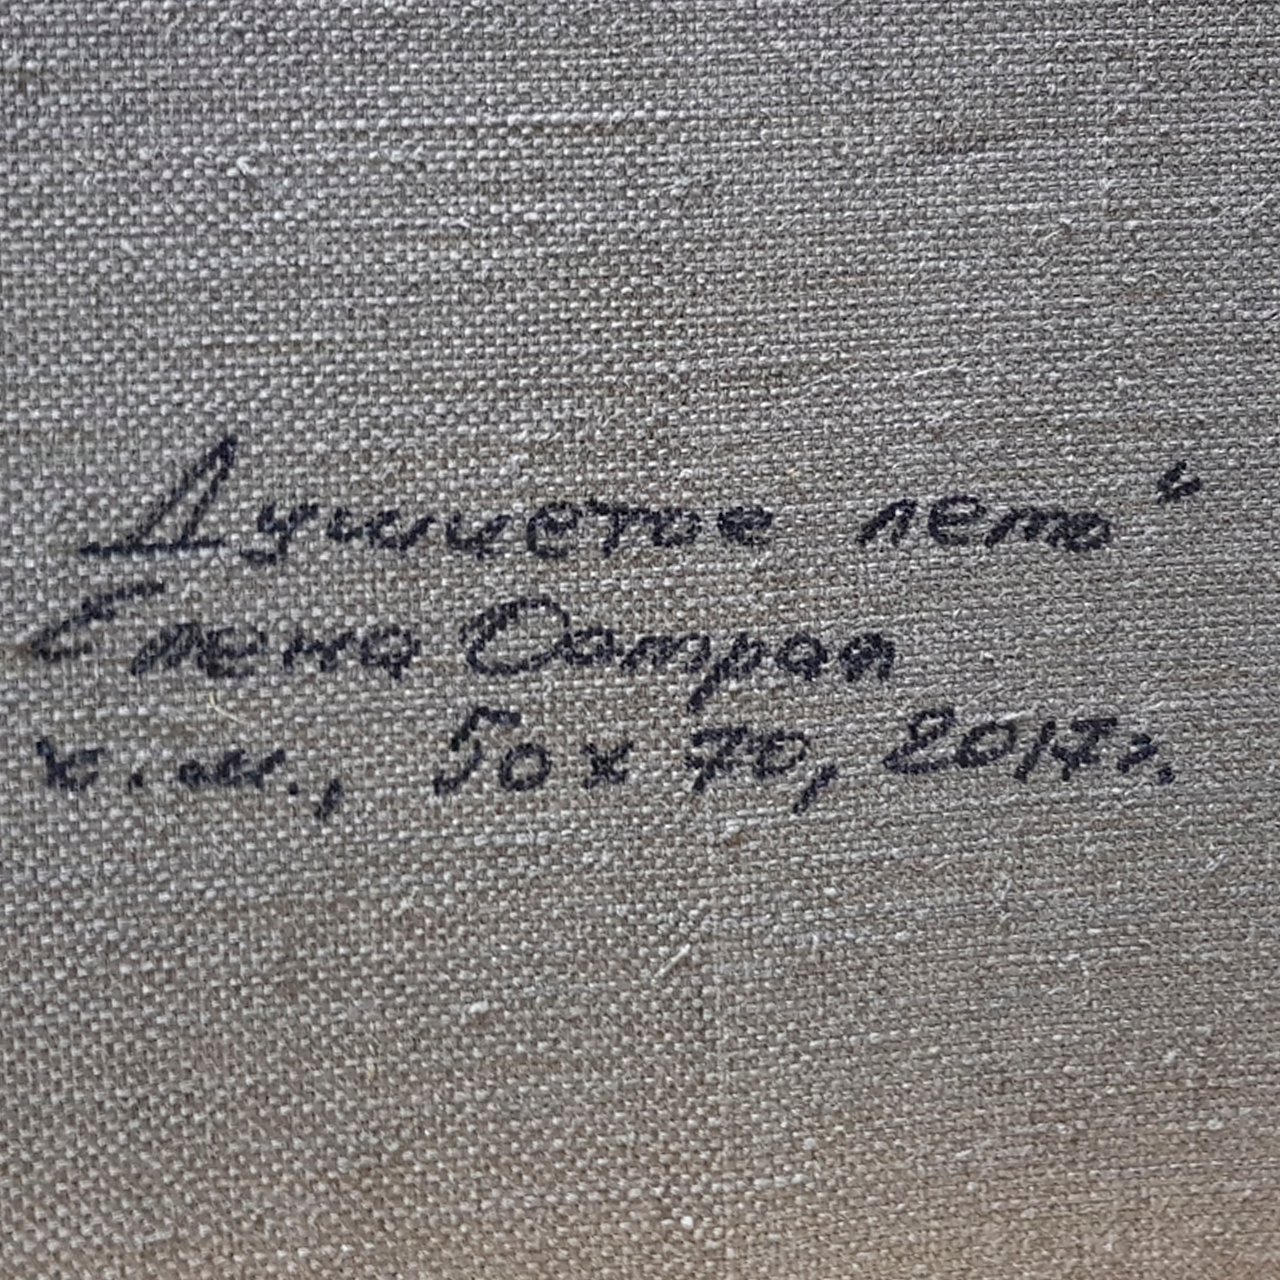 Душистое лето"
Стена Острая
х.м., 50 х 70, 2017г.